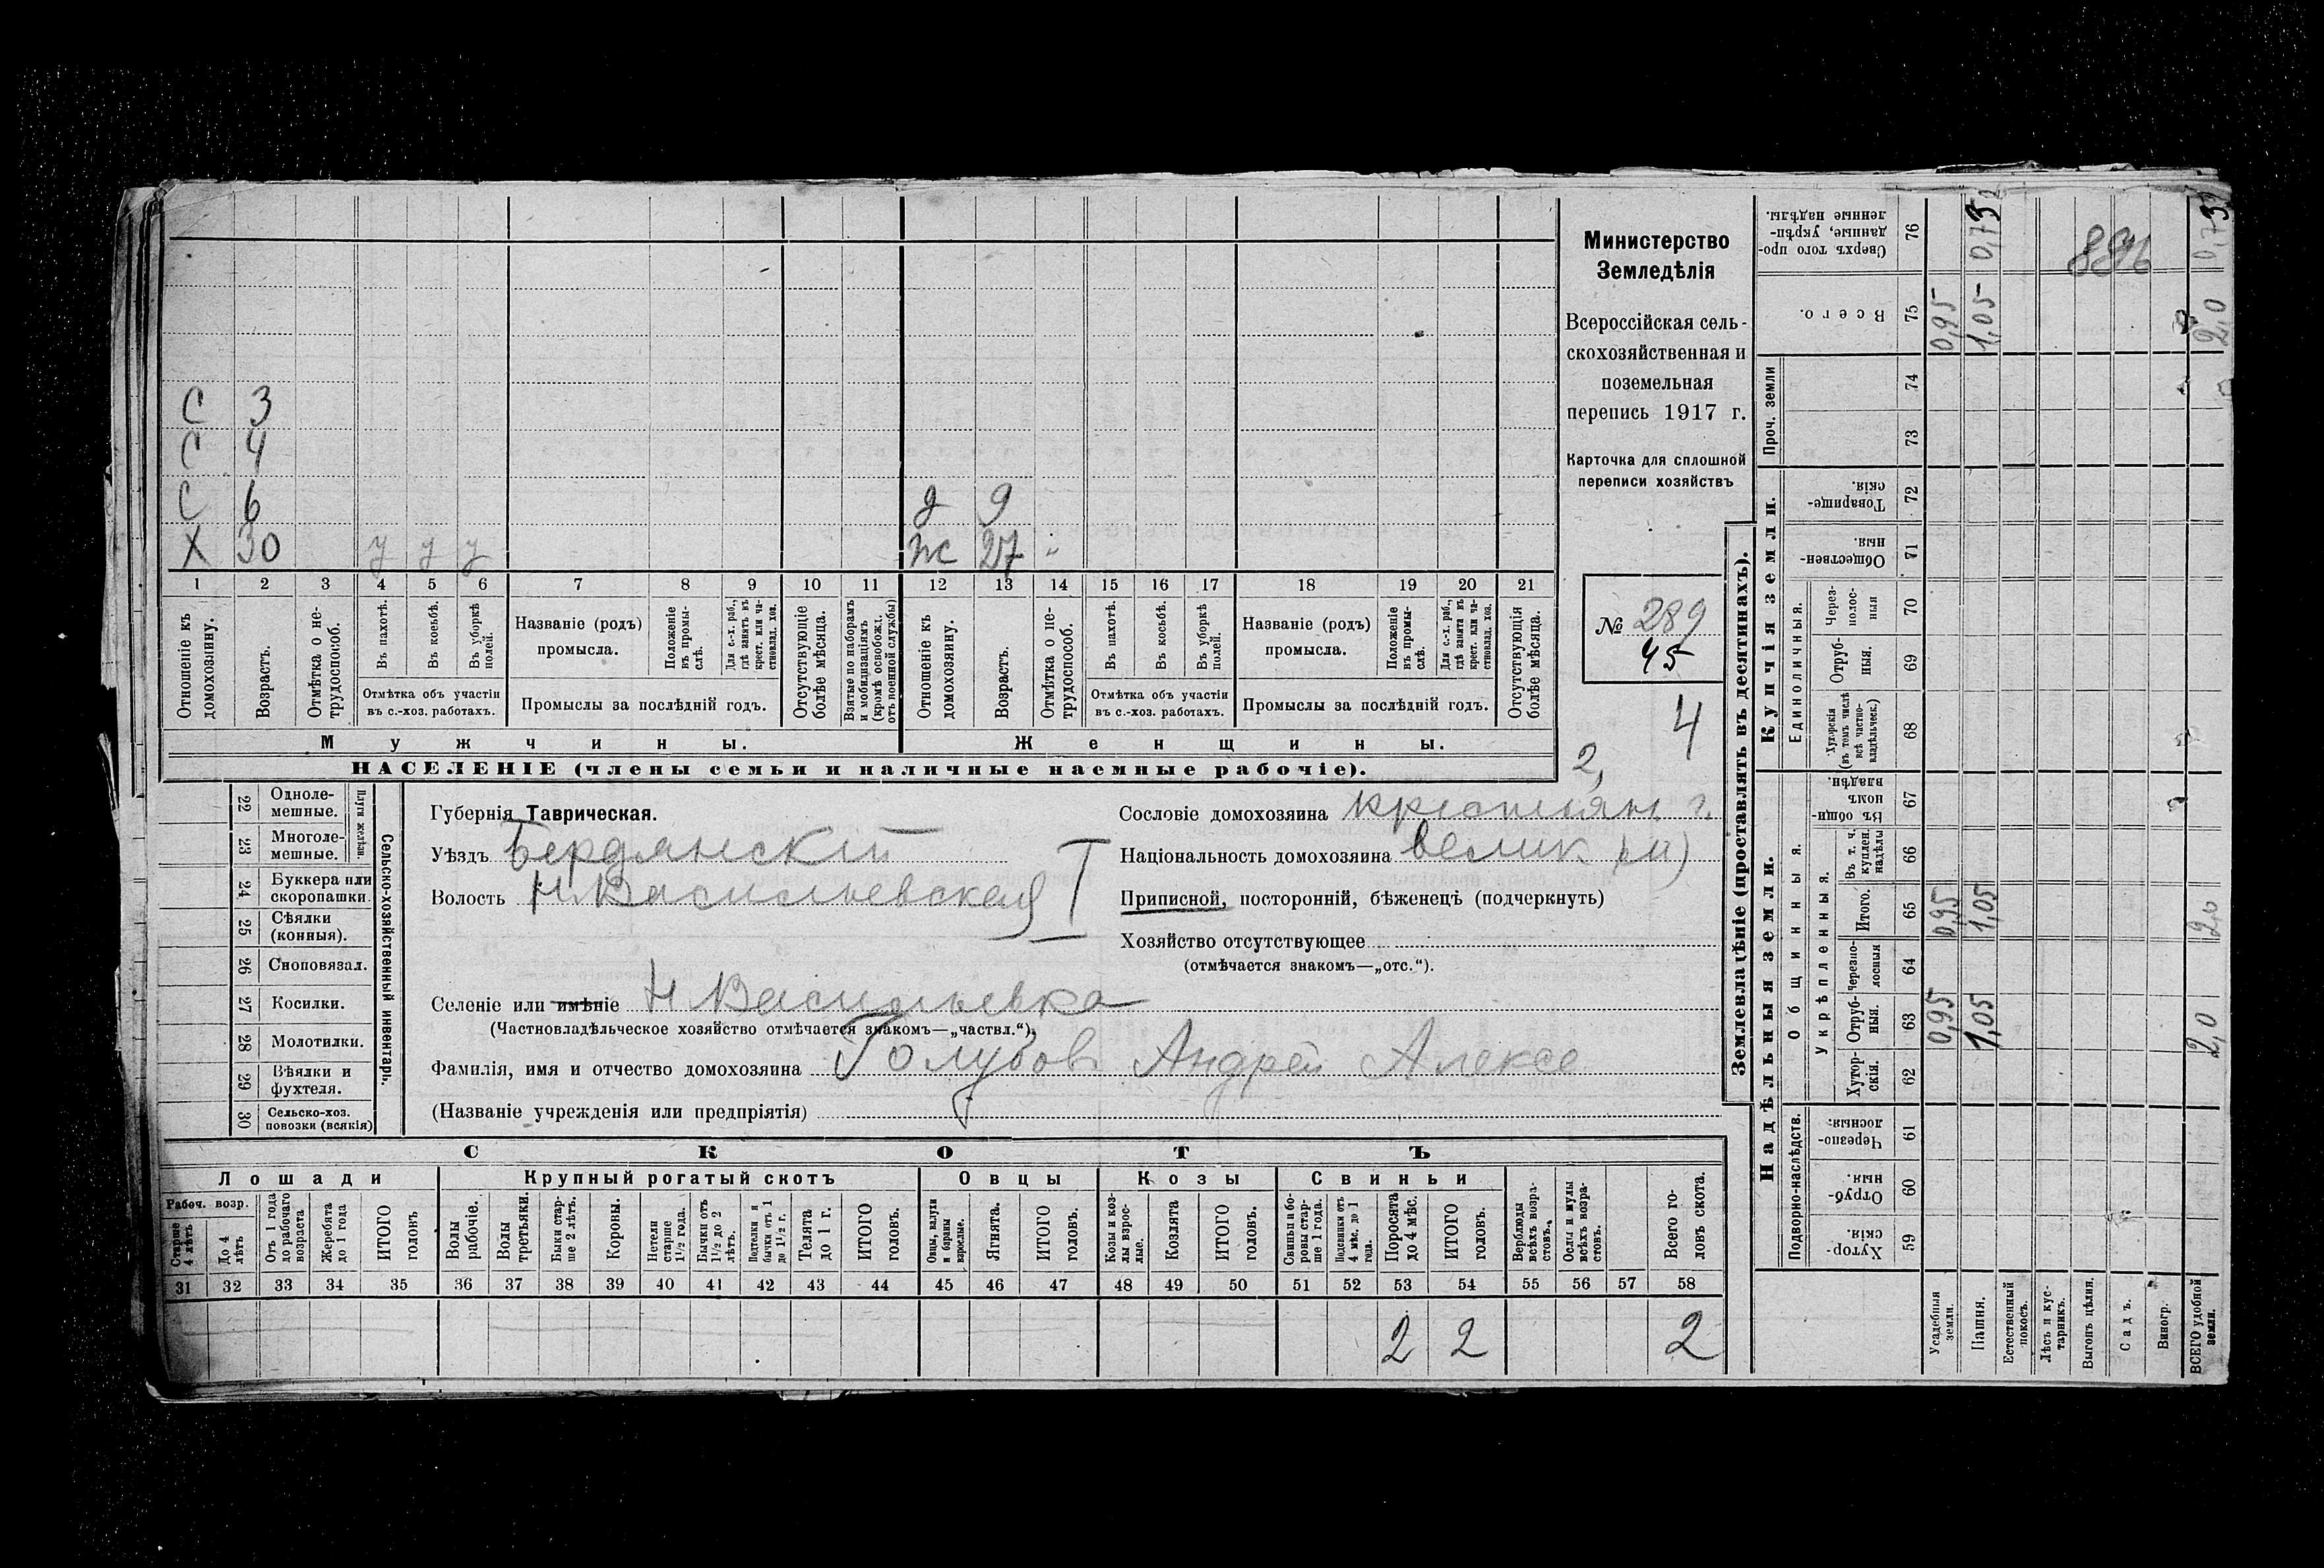 С 3
С 4
С 6 д 9
Х 30 у у у ж 27 "
1 2 3 4 5 6 7 8 9 10 11 12 13 14 15 16 17 18 19 20 21
Отношеніе къ домохозяину.
Возрастъ.
Отмѣтка о нетрудоспособ.
Въ пахотѣ.
Въ косьбѣ.
Въ уборкѣ полей.
Отмѣтка объ участіи
въ с.-хоз. работахъ.
Названіе (родъ)
промысла.
Положеніе въ промыслѣ.
Для с.-х. раб., гдѣ занятъ въ крест. или частновлад. хоз.
Промыслы за послѣдній годъ.
Отсутствующіе болѣе мѣсяца.
Взятые по наборамъ и мобилизаціямъ (кромѣ освобожд. отъ военной службы)
Отношеніе къ домохозяину.
Возрастъ.
Отмѣтка о нетрудоспособ.
Въ пахотѣ.
Въ косьбѣ.
Въ уборкѣ полей.
Отмѣтка объ участіи
въ с.-хоз. работахъ.
Названіе (родъ)
промысла.
Положеніе въ промыслѣ.
Для с.-х. раб., гдѣ занята въ крест. или частновлад. хоз.
Промыслы за послѣдній годъ.
Отсутствующія болѣе мѣсяца.
Мужчины. Женщины.
НАСЕЛЕНІЕ (члены семьи и наличные наемные рабочіе).
Министерство
Земледѣлія
Всероссійская сель-
скохозяйственная и
поземельная
перепись 1917 г.
Карточка для сплошной
переписи хозяйствъ
№ 289
45
4
2,
22 Одноле-
мешные.
23 Многоле-
мешные.
Плуги желѣзн.
24 Буккера или
скоропашки.
25 Сѣялки
(конныя).
26 Сноповязал.
27 Косилки.
28 Молотилки.
29 Вѣялки и
фухтеля.
30 Сельско-хоз.
повозки (всякія)
Сельско-хозяйственный инвентарь.
Губернія Таврическая.
Уѣздъ Бердянскій
Волость Н. Васильевская I
Сословіе домохозяина крестьян
Національность домохозяина велик
Приписной, посторонній, бѣженецъ (подчеркнуть)
Хозяйство отсутствующее
(отмѣчается знакомъ—„отс.“).
Селеніе или имѣніе Н Васильевка
(Частновладѣльческое хозяйство отмѣчается знакомъ—„частвл.“).
Фамилія, имя и отчество домохозяина Голубов Андрей Алексе
(Названіе учрежденія или предпріятія)
СКОТЪ
Лошади Крупный рогатый скотъ Овцы Козы Свиньи
Рабоч. возр.
Старше 4 лѣтъ
До 4 лѣтъ
Отъ 1 года до рабочаго возраста
Жеребята до 1 года
ИТОГО головъ
Волы рабочіе.
Волы третьяки.
Быки старше 2 лѣтъ.
Коровы.
Нетели старше 1 1/2 года.
Бычки отъ 1 1/2 до 2 лѣтъ.
Подтелки и бычки отъ 1 до 1 1/2 г.
Телята до 1 г.
ИТОГО головъ.
Овцы, валухи и бараны взрослые.
Ягнята.
ИТОГО головъ.
Козы и козлы взрослые.
Козлята
ИТОГО головъ.
Свиньи и боровы старше 1 года.
Подсвинки отъ 4 мѣс. до 1 года.
Поросята до 4 мѣс.
ИТОГО головъ.
Верблюды всѣхъ возрастовъ.
Ослы и мулы всѣхъ возрастовъ.
Всего головъ скота.
31 32 33 34 35 36 37 38 39 40 41 42 43 44 45 46 47 48 49 50 51 52 53 54 55 56 57 58
2 2 2
Землевладѣніе (проставлять въ десятинахъ).
Надѣльныя земли. Купчія земли.
Подворно-наслѣдств.
Общинныя.
Укрѣпленныя.
Единоличныя.
Проч. земли
Хуторскія. 59
Отрубныя. 60
Черезполосныя. 61
Хуторскія. 62
Отрубныя. 63
черезполосныя 64
Итого. 65
Въ т. ч. куплен. надѣлы 66
Въ общинномъ владѣн. 67
Хуторскія (въ томъ числѣ всѣ частновладѣльческ.) 68
Отрубныя. 69
Черезполосныя 70
Общественныя. 71
Товарищескія. 72
73
74
Всего. 75
Сверхъ того проданные, укрѣпленные надѣлы. 76
Усадебныя земли. 0,95 0,95 0,95
Пашня. 1,05 1,05 1,05 0,73
Естественный покосъ.
Лѣсъ и кустарникъ.
Выгонъ цѣлин.
Садъ.
Виногр.
ВСЕГО удобной земли. 2,0 2,0 2,0 0,73